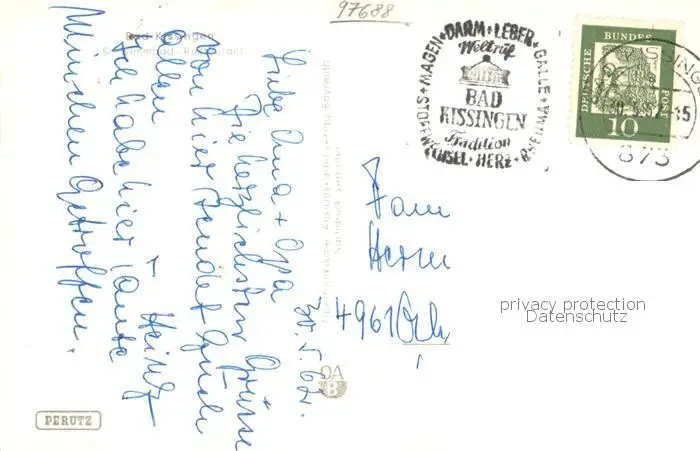 97688
Bad Kissingen
Schwimmbad - Restaurant
Liebe Oma + Opa
Die herzlichsten Grüsse
von hier sendet Euch
allen
Heinz
Ich habe hier Tante
München getroffen.
30. 5. 62.
STOFFWECHSEL · HERZ · RHEUMA · GALLE · LEBER · DARM · MAGEN
Weltruf
BAD
KISSINGEN
Tradition
DEUTSCHE BUNDESPOST
10
BAD KISSINGEN
873
Fam
Herm
4961
privacy protection
Datenschutz
PERUTZ